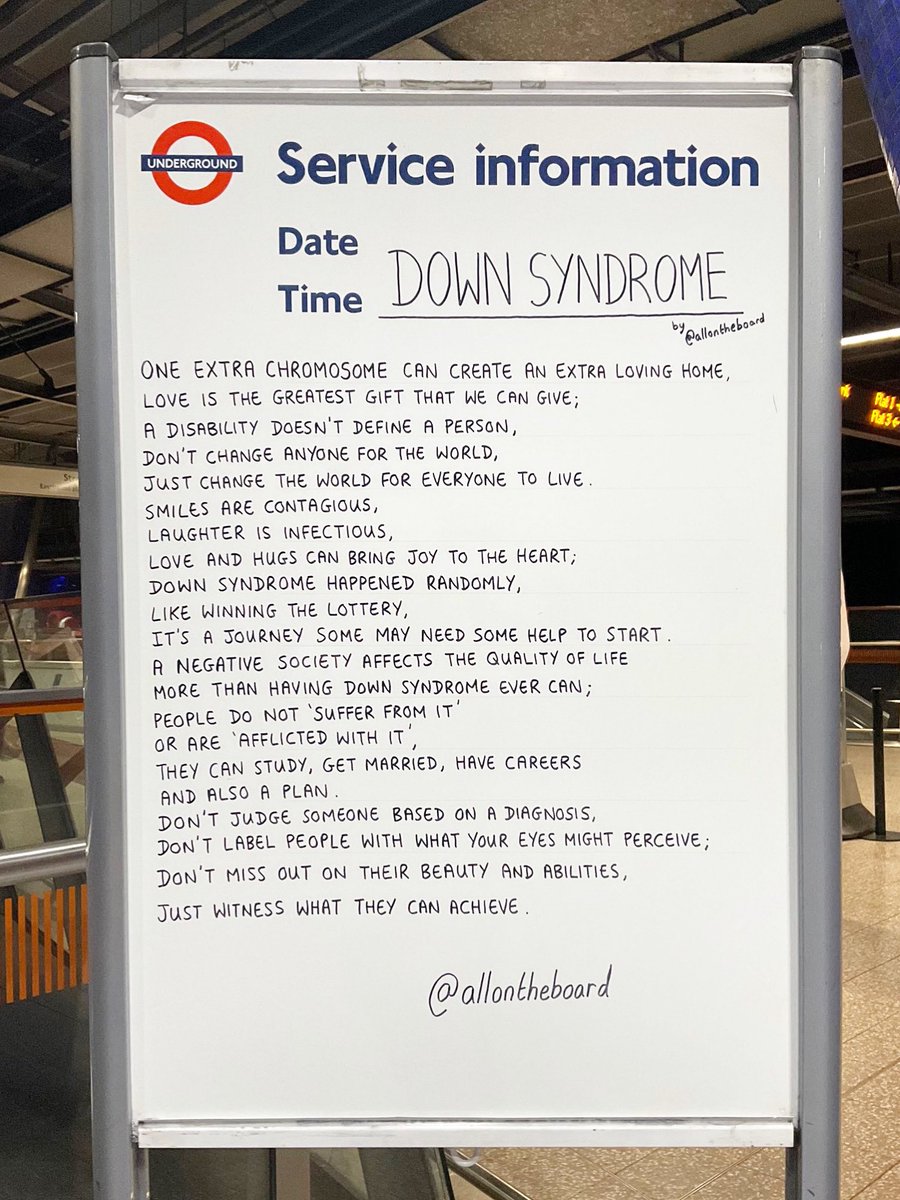 UNDERGROUND
Service information
Date
Time DOWN SYNDROME
by @allontheboard
ONE EXTRA CHROMOSOME CAN CREATE AN EXTRA LOVING HOME,
LOVE IS THE GREATEST GIFT THAT WE CAN GIVE;
A DISABILITY DOESN'T DEFINE A PERSON,
DON'T CHANGE ANYONE FOR THE WORLD,
JUST CHANGE THE WORLD FOR EVERYONE TO LIVE.
SMILES ARE CONTAGIOUS,
LAUGHTER IS INFECTIOUS,
LOVE AND HUGS CAN BRING JOY TO THE HEART;
DOWN SYNDROME HAPPENED RANDOMLY,
LIKE WINNING THE LOTTERY,
IT'S A JOURNEY SOME MAY NEED SOME HELP TO START.
A NEGATIVE SOCIETY AFFECTS THE QUALITY OF LIFE
MORE THAN HAVING DOWN SYNDROME EVER CAN;
PEOPLE DO NOT 'SUFFER FROM IT'
OR ARE 'AFFLICTED WITH IT',
THEY CAN STUDY, GET MARRIED, HAVE CAREERS
AND ALSO A PLAN.
DON'T JUDGE SOMEONE BASED ON A DIAGNOSIS,
DON'T LABEL PEOPLE WITH WHAT YOUR EYES MIGHT PERCEIVE;
DON'T MISS OUT ON THEIR BEAUTY AND ABILITIES,
JUST WITNESS WHAT THEY CAN ACHIEVE.
@allontheboard